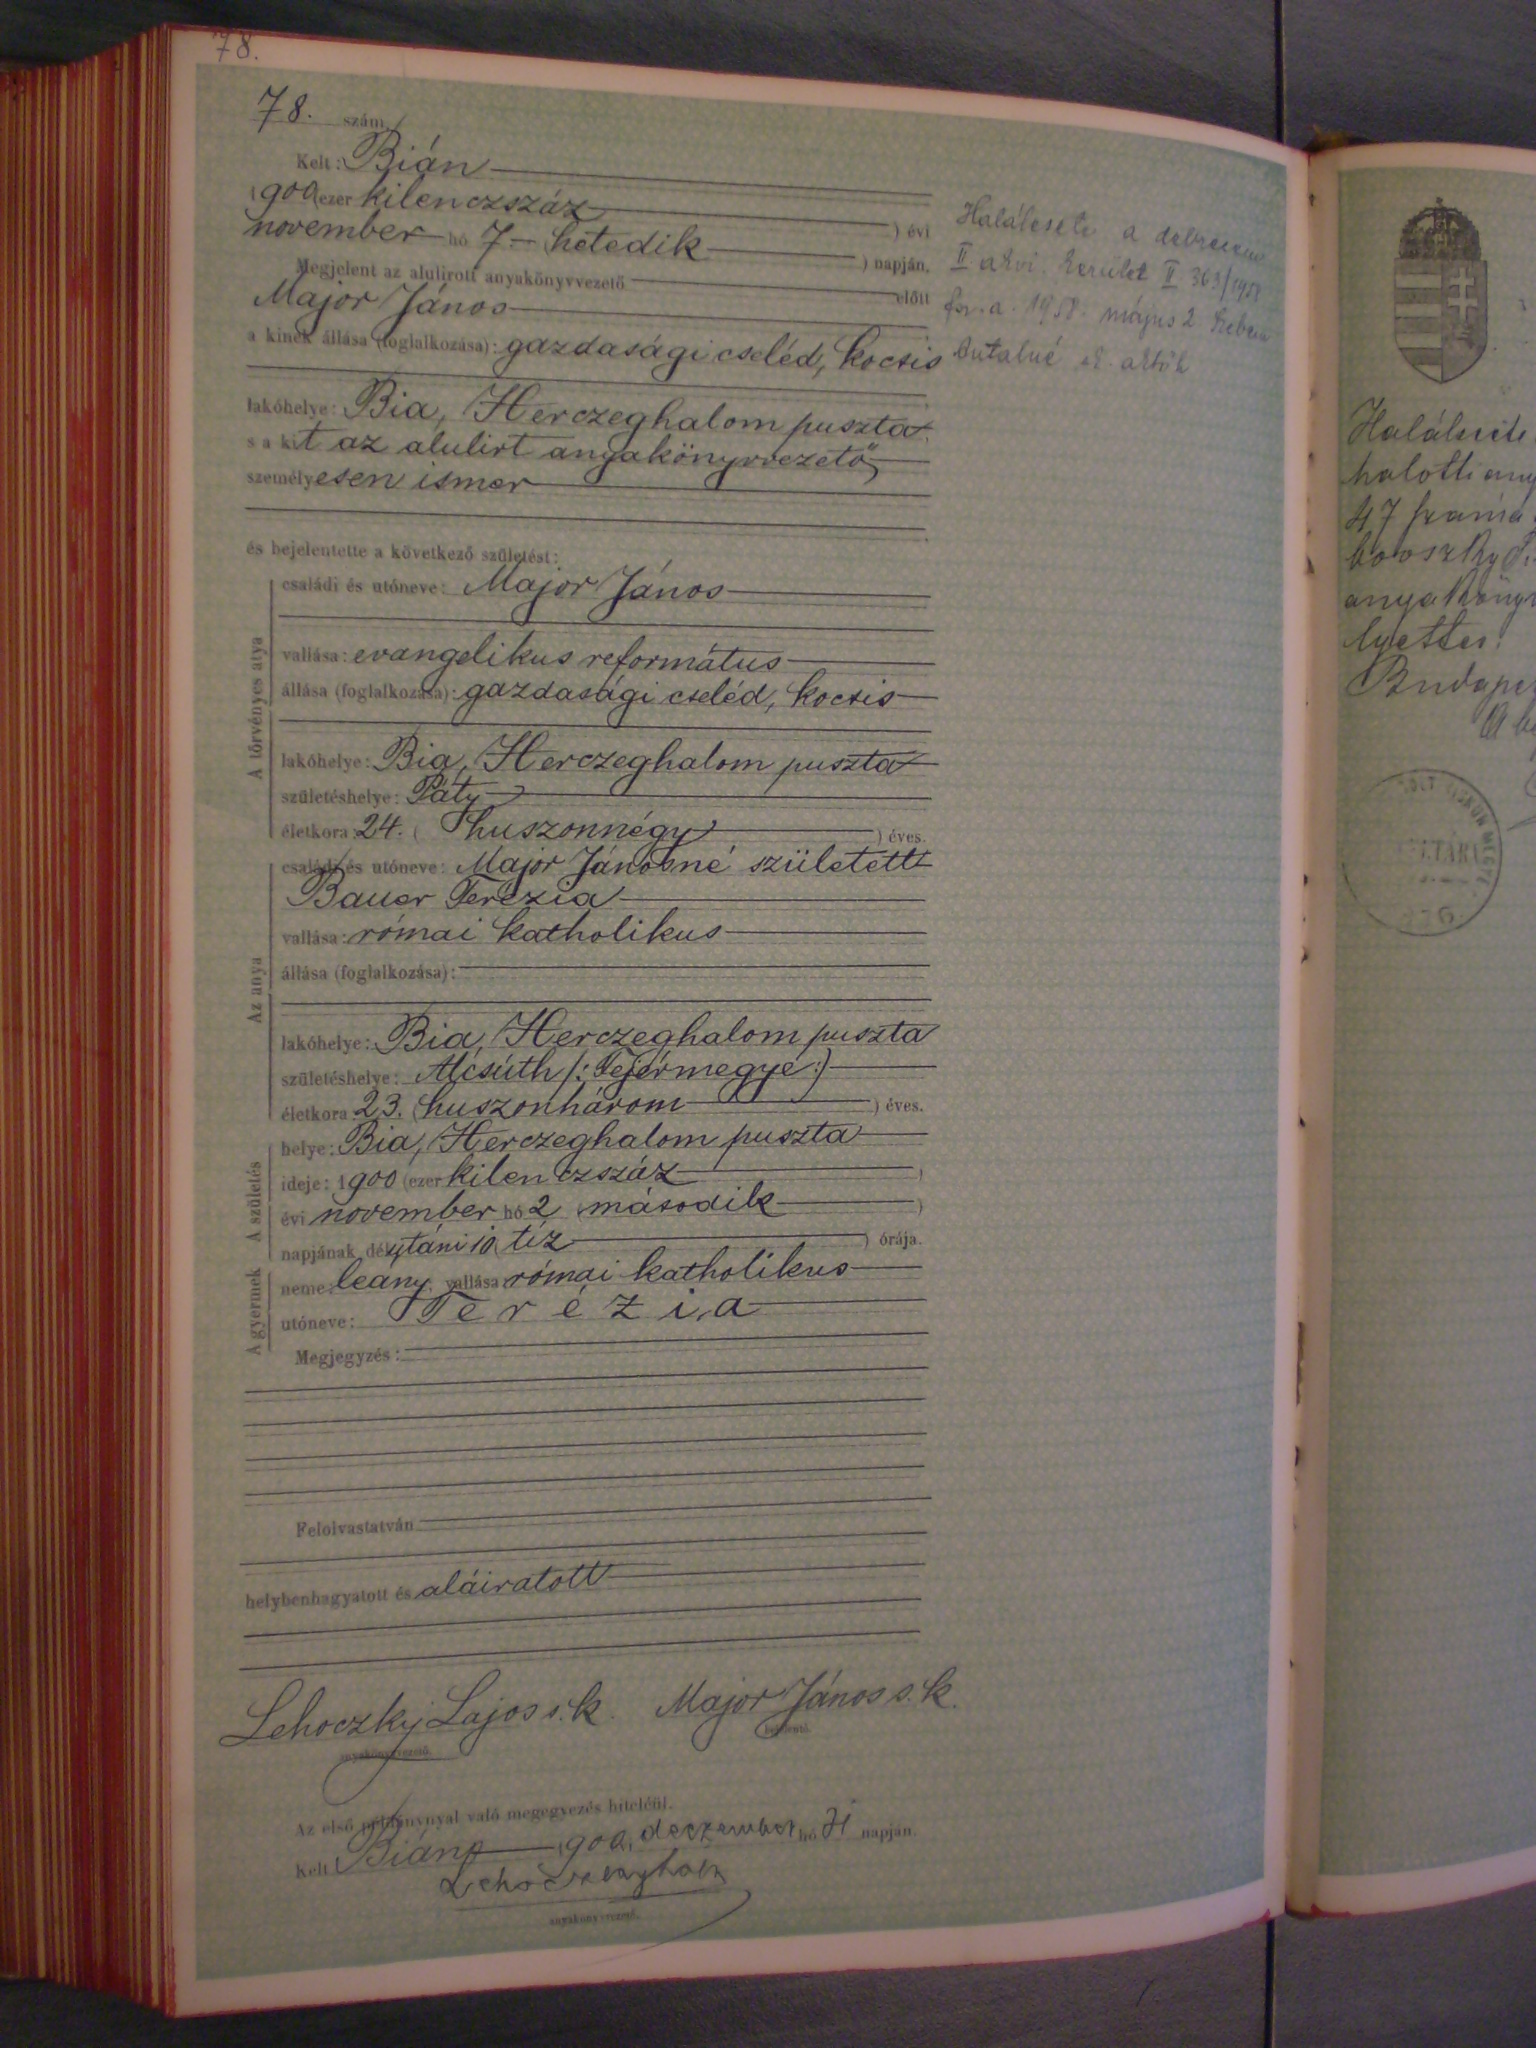 78.
78. szám
Kelt: Bián
1900 (ezer kilenczszáz ) évi
november hó 7 (hetedik ) napján.
Megjelent az alulirott anyakönyvvezető előtt
Major János
a kinek állása (foglalkozása): gazdasági cseléd, kocsis
lakóhelye: Bia, Herczeghalom puszta
s a kit az alulirt anyakönyvvezető
személyesen ismer
és bejelentette a következő születést:
A törvényes atya
családi és utóneve: Major János
vallása: evangelikus református
állása (foglalkozása): gazdasági cseléd, kocsis
lakóhelye: Bia, Herczeghalom puszta
születéshelye: Páty
életkora: 24. (huszonnégy ) éves.
Az anya
családi és utóneve: Major Jánosné született
Bauer Terézia
vallása: római katholikus
állása (foglalkozása):
lakóhelye: Bia, Herczeghalom puszta
születéshelye: Alcsúth /: Fejérmegye :/
életkora 23. (huszonhárom ) éves.
A születés
helye: Bia, Herczeghalom puszta
ideje: 1900 (ezer kilenczszáz )
évi november hó 2 (második )
napjának délutáni 10 (tíz ) órája.
A gyermek
neme: leány vallása: római katholikus
utóneve: Terézia
Megjegyzés:
Felolvastatván
helybenhagyatott és aláiratott
Lehoczky Lajos s.k. Major János s.k.
anyakönyvvezető. bejelentő.
Az első példánynyal való megegyezés hiteléül.
Kelt Bián 1900, deczember hó 31 napján.
anyakönyvvezető.
Haláleseti a debreceni
II akvi. kerület II 363/1958
fsz. a. 1958. május 2
Antalné
Haláleseti
halotti any
47 szám
anyakönyv
lyettes.
Budapest